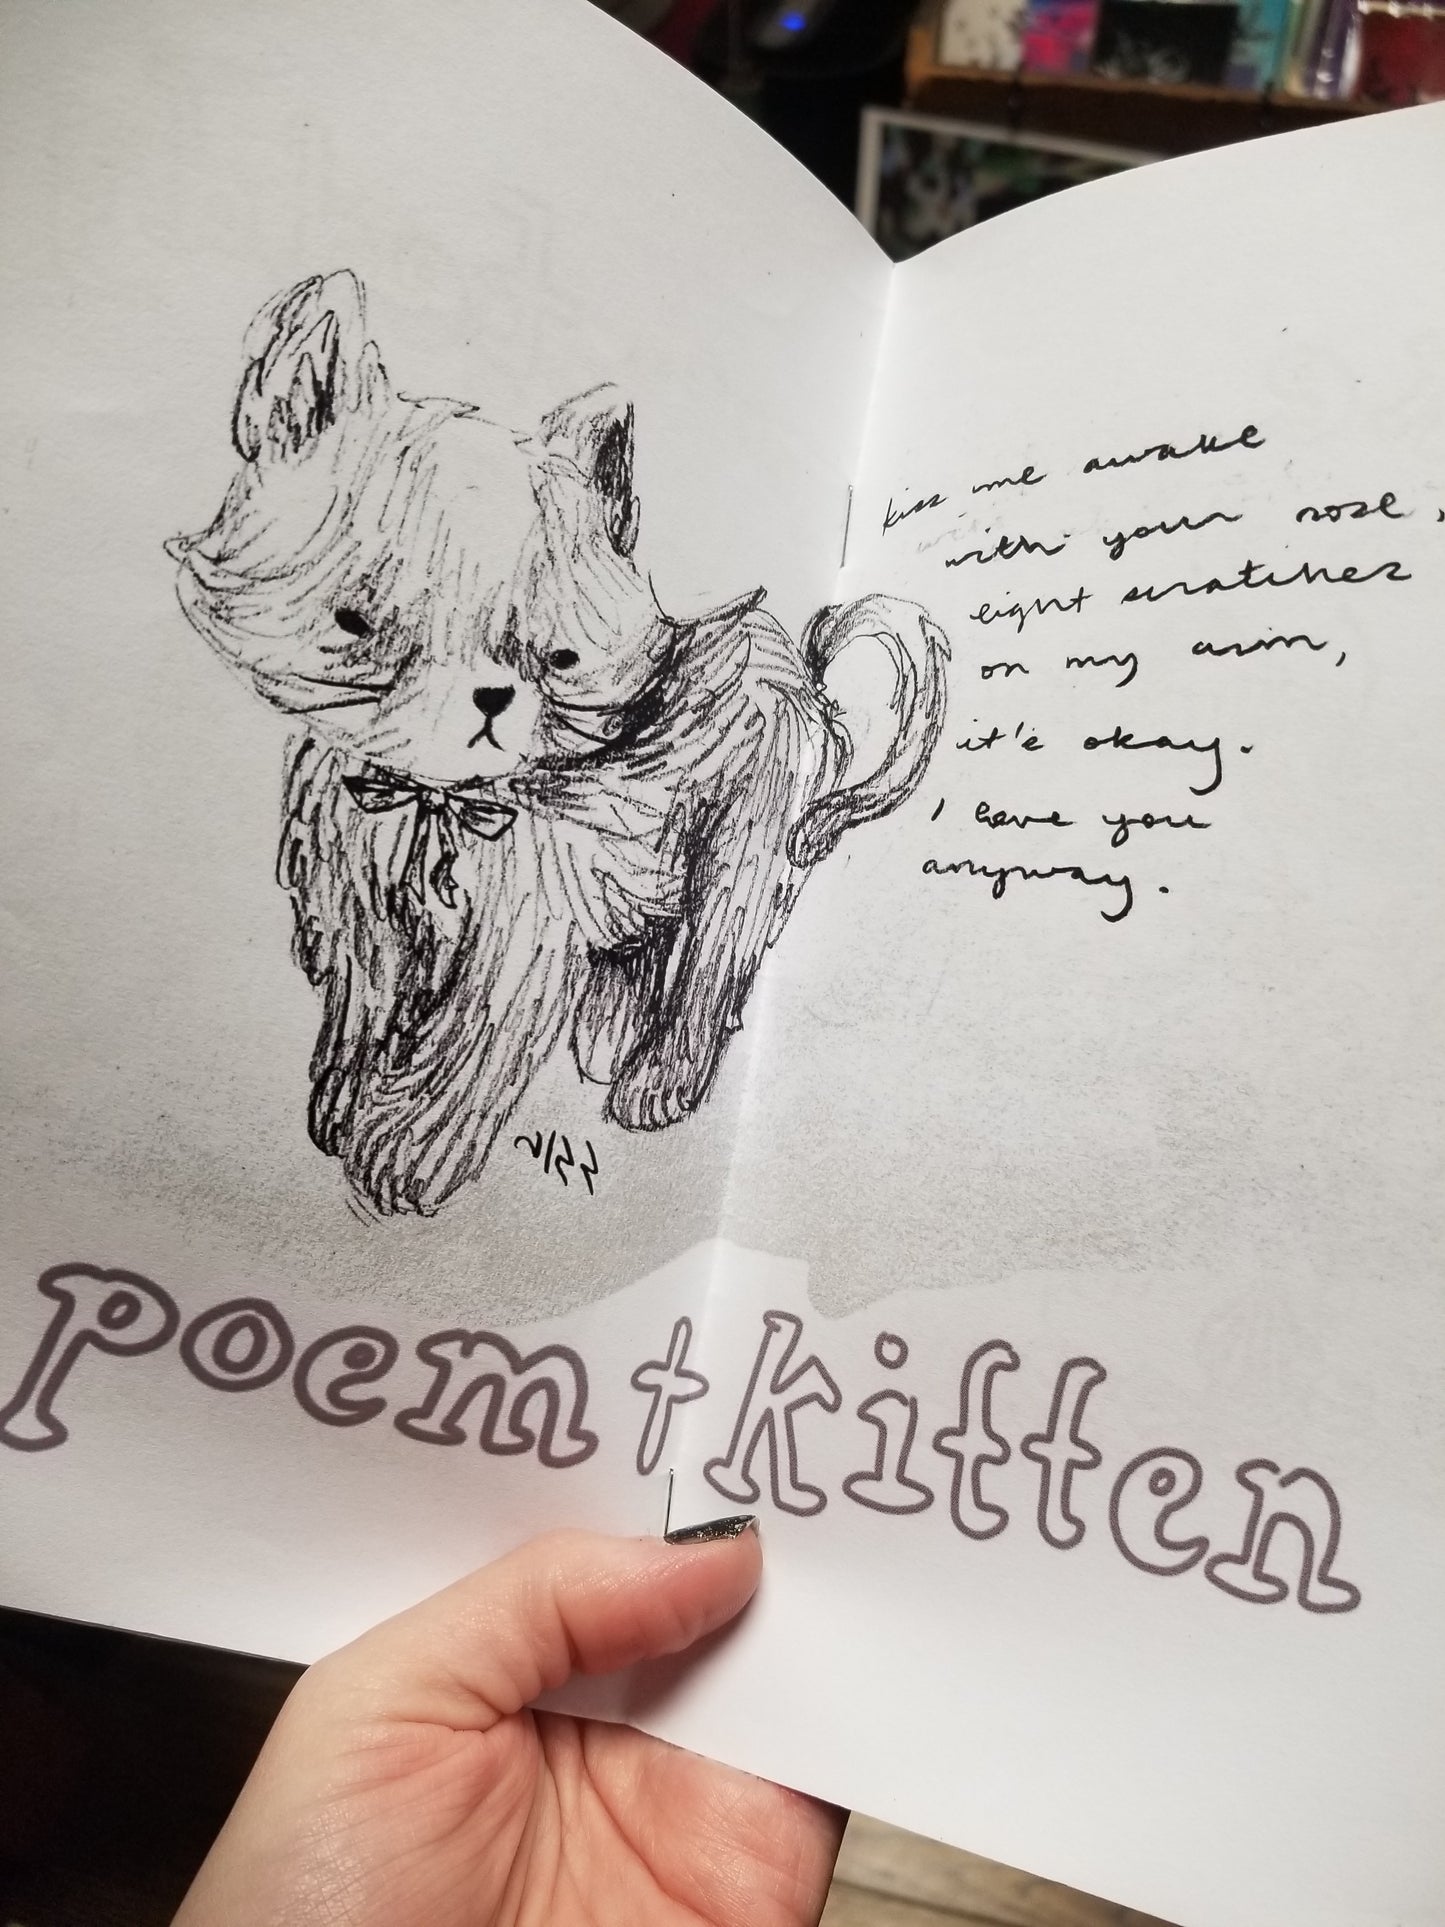 kiss me awake
with your nose,
eight scratches
on my arm,
it's okay.
i love you
anyway.
poem + kitten